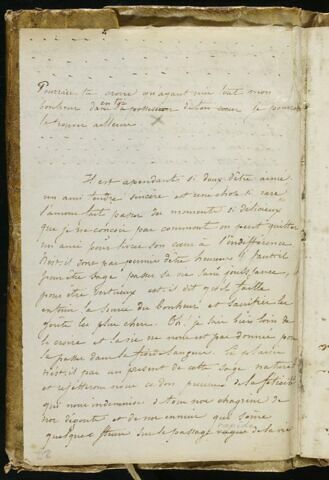 Pourriez tu croire qu'ayant mis tout mon
bonheur dans la possession de ton cœur je pourrai
entre
le trouver ailleurs ×
Il est cependant si doux d'être aimé
un ami tendre sincère est une chose si rare
l'amour fait passer des moments si délicieux
que je ne conçois pas comment on peut quitter
un ami pour livrer son cœur à l'indifférence
N'est-il donc pas permis d'être heureux faut il
pour être sage passer sa vie sans jouissances,
pour être vertueux est il dit qu'il faille
la source du bonheur et sacrifier les
goûts les plus chers. Oh! je suis bien loin de
le croire et la vie ne nous est pas donnée pour
la passer dans la froide langueur. Le plaisir
n'est il pas un présent de cette sage nature
et nous ce don précieux de la félicité
qui nous indemnise de tous nos chagrins de
nos dégoûts et de nos ennuis qui sème
rapide
quelques fleurs sur le passage de la vie
82